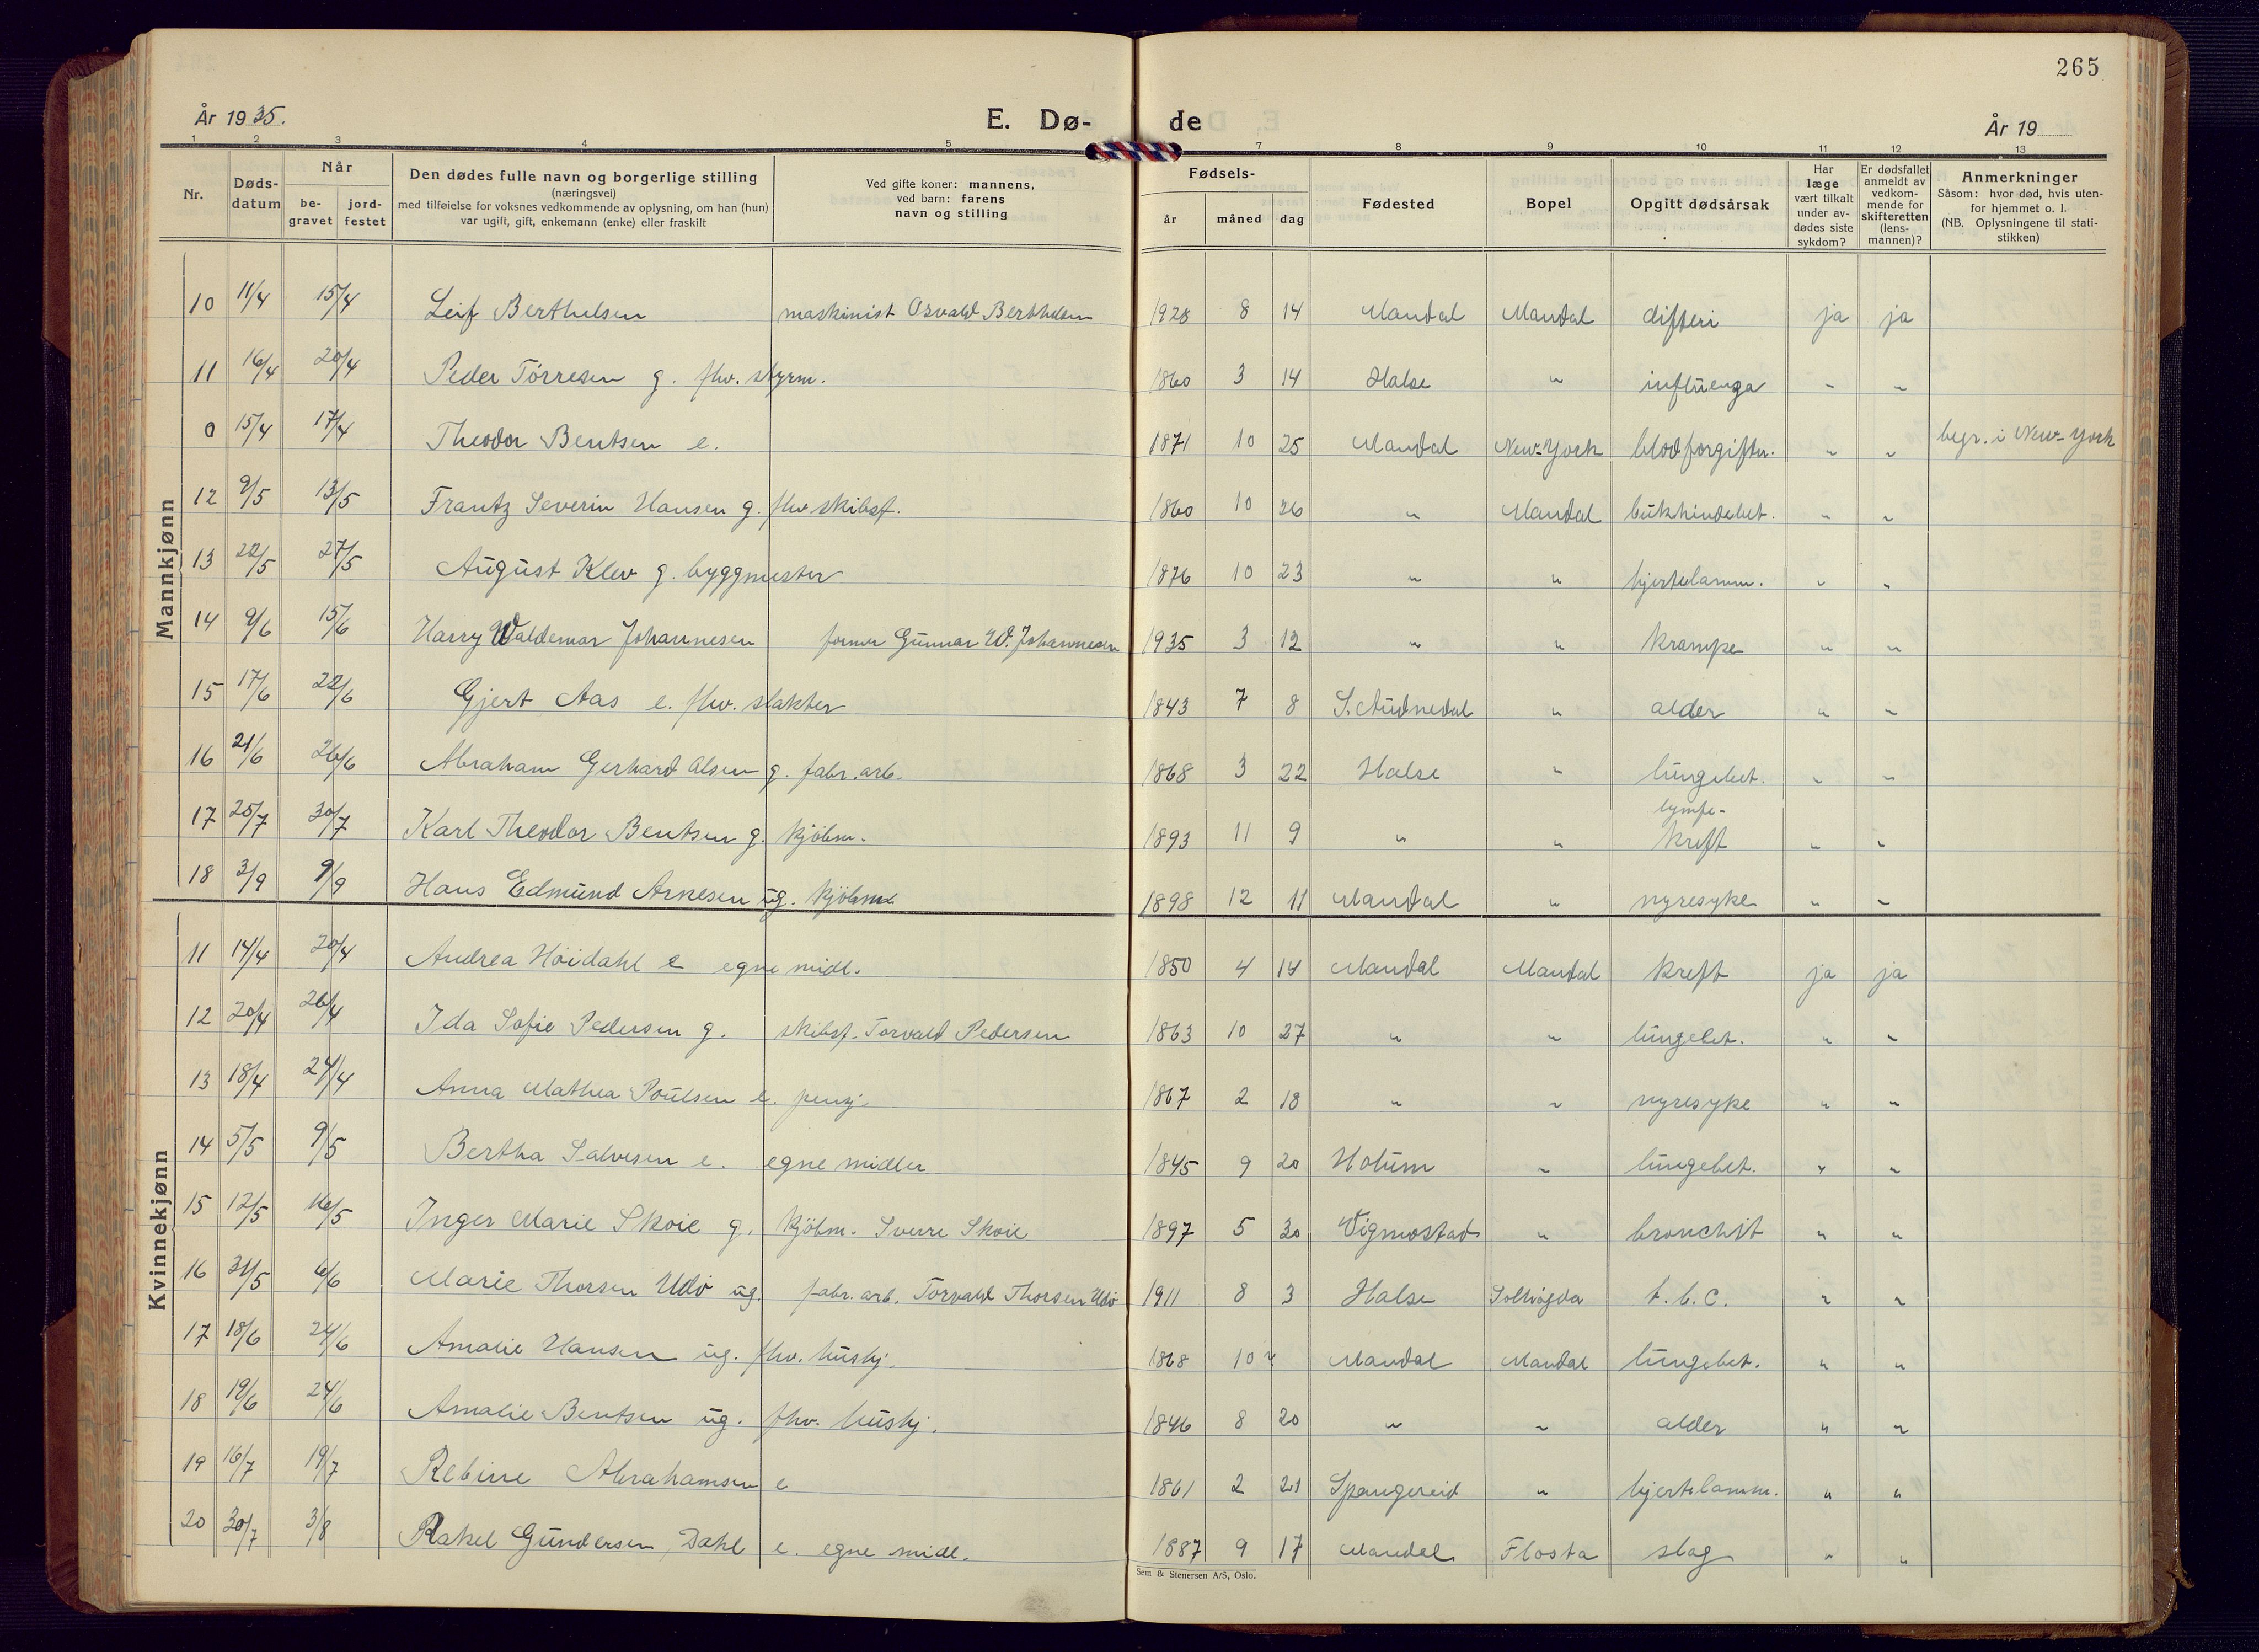 265
År 1935.
E. Dø-
de
År 19
1 2 3 4 5 7 8 9 10 11 12 13
Nr.
Døds-
datum
Når
be-
gravet
jord-
festet
Den dødes fulle navn og borgerlige stilling
(næringsvei)
med tilføielse for voksnes vedkommende av oplysning, om han (hun)
var ugift, gift, enkemann (enke) eller fraskilt
Ved gifte koner: mannens,
ved barn: farens
navn og stilling
Fødsels-
år
måned
dag
Fødested
Bopel
Opgitt dødsårsak
Har
læge
vært tilkalt
under av-
dødes siste
sykdom?
Er dødsfallet
anmeldt av
vedkom-
mende for
skifteretten
(lens-
mannen)?
Anmerkninger
Såsom: hvor død, hvis uten-
for hjemmet o. l.
(NB. Oplysningene til stati-
stikken)
Mannkjønn
10 11/4 15/4 Leif Berthelsen maskinist Osvald Berthelsen 1928 8 14 Mandal Mandal difteri ja ja
11 16/4 20/4 Peder Tørresen g. fhv. styrm. 1860 3 14 Halse " influenza " "
0 15/4 17/4 Theodor Bentsen e. 1871 10 25 Mandal New-York blodforgiftn. " " begr. i New-York
12 9/5 13/5 Frantz Severin Hansen g. fhv skibsf. 1860 10 26 " Mandal bukhindebet. " "
13 22/5 27/5 August Klev g. byggmester 1876 10 23 " " hjertelamm. " "
14 9/6 15/6 Harry Waldemar Johannesen former Gunnar W. Johannesen 1935 3 12 " " krampe " "
15 17/6 22/6 Gjert Aas e. fhv. slakter 1843 7 8 S. Audnedal " alder " "
16 21/6 26/6 Abraham Gerhard Olsen g. fabr. arb. 1868 3 22 Halse " lungebet. " "
17 25/7 30/7 Karl Theodor Bentsen g. kjøbm. 1893 11 9 " " lympe-
kreft " "
18 3/9 9/9 Hans Edmund Arnesen ug. kjøbm 1898 12 11 Mandal " nyresyke " "
Kvinnekjønn
11 14/4 20/4 Andrea Høidahl e egne midl. 1850 4 14 Mandal Mandal kreft ja ja
12 20/4 26/4 Ida Sofie Pedersen g. skibsf. Torvald Pedersen 1863 10 27 " " lungebet. " "
13 18/4 24/4 Anna Mathea Poulsen e. penj. 1867 2 18 " " nyresyke " "
14 5/5 9/5 Bertha Salvesen e. egne midler 1845 9 20 Holum " lungebet. " "
15 12/5 16/5 Inger Marie Skoie g. kjøbm. Sverre Skoie 1897 5 30 Vigmostad " bronchit " "
16 31/5 6/6 Marie Thorsen Udø ug. fabr. arb. Torvald Thorsen Udø 1911 8 3 Halse Solhøgda t.b.c. " "
17 18/6 24/6 Amalie Hansen ug. fhv. hushj. 1868 10 " Mandal Mandal lungebet. " "
18 19/6 24/6 Amalie Bentsen ug. fhv. hushj. 1846 8 20 " " alder " "
19 16/7 19/7 Rebine Abrahamsen e 1861 2 21 Spangereid " hjertelamm. " "
20 30/7 3/8 Rakel Gundersen Dahl e. egne midl. 1887 9 17 Mandal Flosta slag " "
Sem & Stenersen A/S, Oslo.